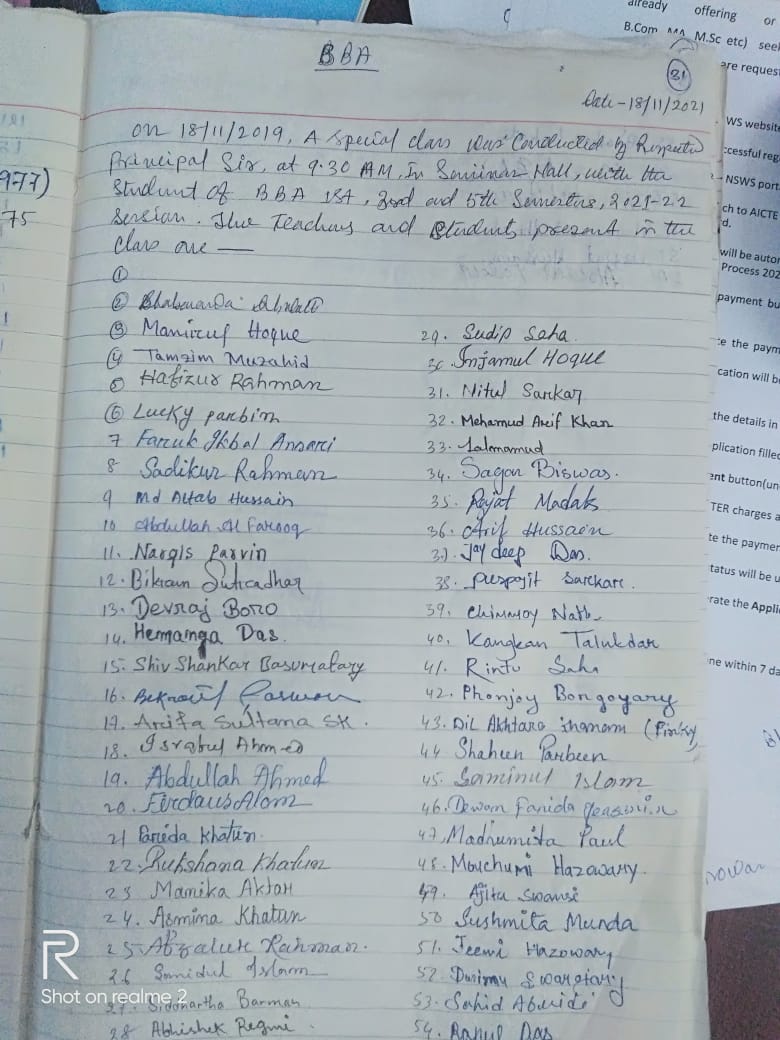 BBA
31
Date-18/11/2021
On 18/11/2019, A special class was Conducted by Respected
Principal Sir, at 9:30 AM, In Seminar Hall, with the
Student of BBA 1st, 3rd and 5th Semesters, 2021-22
session. The Teachers and Students present in the
class are —
①
②
③ Manirul Hoque
④ Tamzim Muzahid
⑤ Hafizur Rahman
⑥ Lucky parbim
7 Faruk Ikbal Ansari
8 Sadikur Rahman
9 Md Altab Hussain
10 Abdullah Al Farooq
11. Nargis Parvin
12. Bikram Sutradhar
13. Devraj Boro
14. Hemanga Das.
15. Shiv Shankar Basumatary
16.
17. Arifa Sultana SK.
18. Israbul Ahmed
19. Abdullah Ahmed
20. Firdaus Alom
21 Parida Khatun.
22. Rukshana Khatun
23 Manika Aktar
24. Asmina Khatun
25. Afzalur Rahman.
26 Islam
27. Siddhartha Barman
28 Abhishek Regmi.
29. Sudip Saha.
30. Injamul Hoque
31. Nitul Sarkar
32. Mehamud Arif Khan
33. Lalmamud
34. Sagar Biswas.
35. Rajat Madak
36. Arif Hussain
37. Jaydeep Das.
38. Puspojit Sarkar.
39. Chinmoy Nath
40. Kangkan Talukdar
41. Rintu Saha
42. Phonjoy Bongoyary
43. Dil Akhtara Khanam (Pinky)
44 Shaheen Parbeen
45. Saminul Islam
46. Dewan Farida Yeasmin
47. Madhumita Paul
48. Mouchumi Hazowary.
49. Ajita Swansi
50 Sushmita Munda
51. Jeemi Hazowary
52. Swargiary
53. Sahid
54. Rahul Das
977)
75
already offering or
B.Com MA M.Sc etc) seek
are request
WS website
ccessful reg
NSWS port
ch to AICTE
d.
will be autom
Process 202
payment bu
e the paym
cation will b
the details in
plication filled
ent button(un
TER charges a
te the paymen
tatus will be u
rate the Applic
ne within 7 da
R
Shot on realme 2